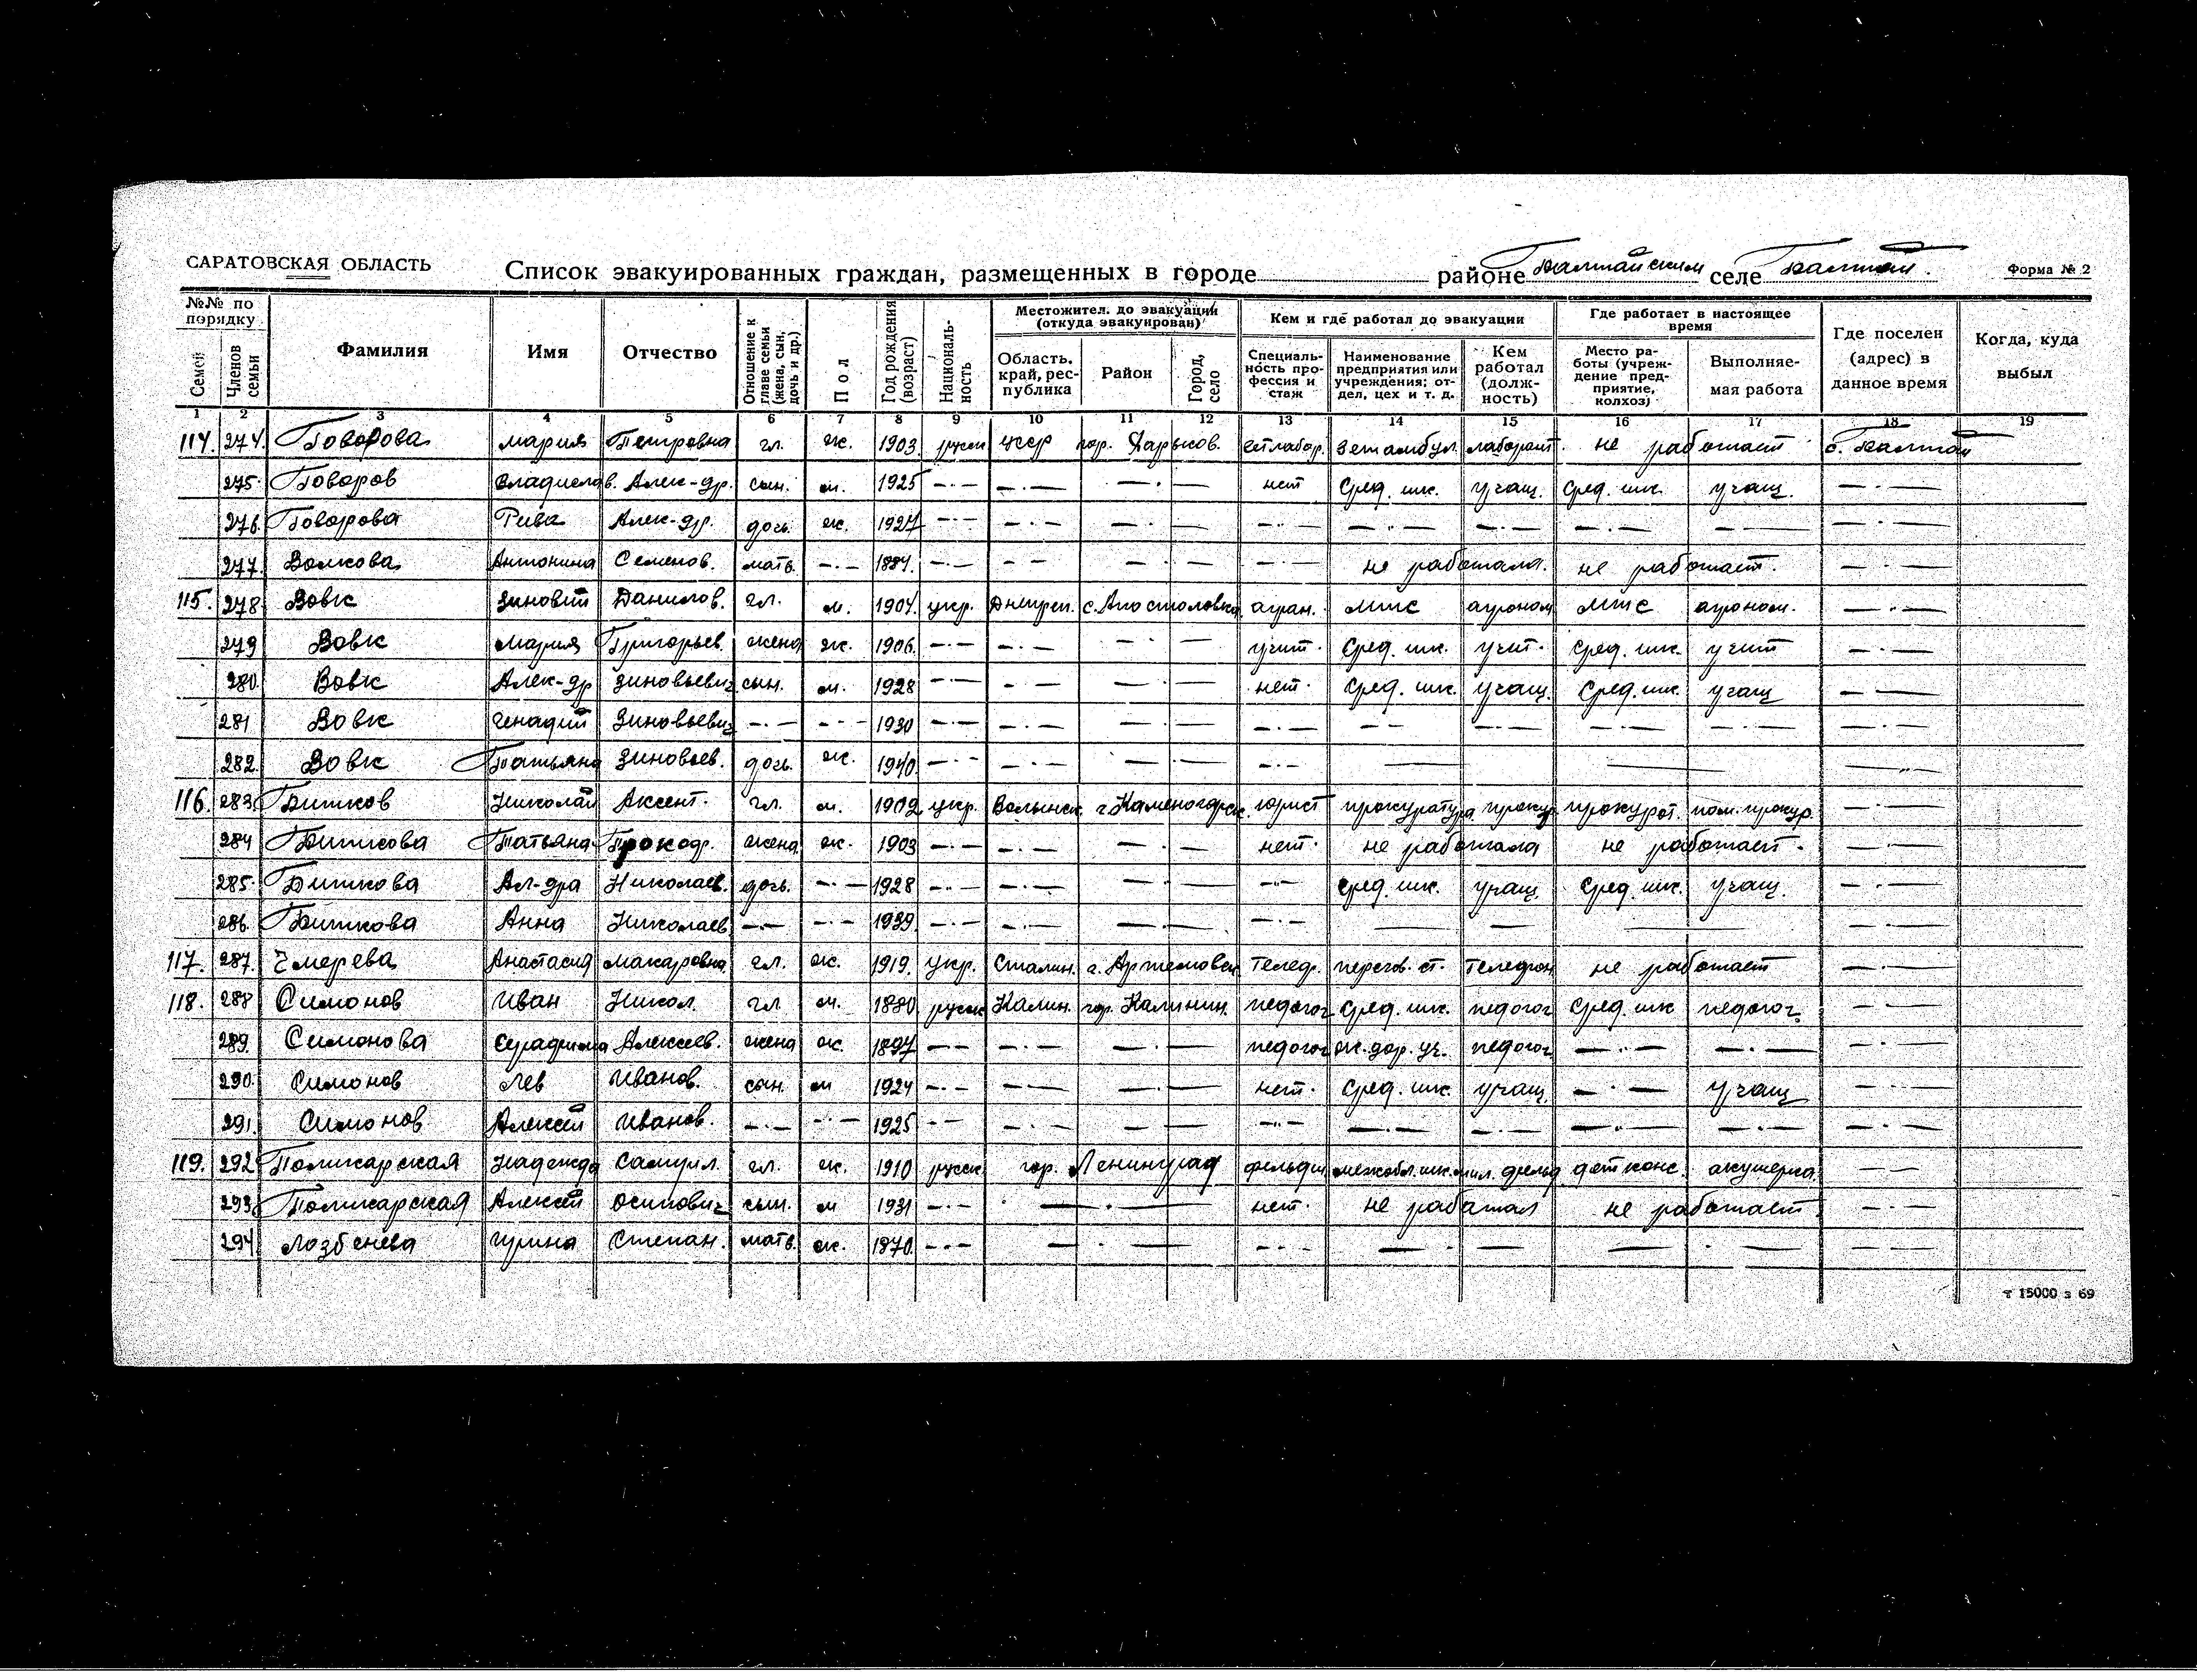 САРАТОВСКАЯ ОБЛАСТЬ
Список эвакуированных граждан, размещенных в городе районе Балтайским селе Балтай. Форма № 2
№№ по порядку
Семей
Членов семьи
Фамилия
Имя
Отчество
Отношение к главе семьи (жена, сын, дочь и др.)
Пол
Год рождения (возраст)
Националь-ность
Местожител. до эвакуации (откуда эвакуирован)
Область, край, рес-публика
Район
Город, село
Кем и где работал до эвакуации
Специаль-ность про-фессия и стаж
Наименование предприятия или учреждения; от-дел, цех и т. д.
Кем работал (долж-ность)
Где работает в настоящее время
Место ра-боты (учреж-дение пред-приятие, колхоз)
Выполняе-мая работа
Где поселен (адрес) в данное время
Когда, куда выбыл
1 2 3 4 5 6 7 8 9 10 11 12 13 14 15 16 17 18 19
114. 274. Говорова Мария Петровна гл. ж. 1903 русск УССР гор. Харьков. ветлабор. Зетамбул. лаборант. не работает с. Балтай
275. Говоров Владислав. Алек-др. сын. м. 1925 —·— —·— —·— нет Сред. шк. учащ. Сред. шк. учащ. —·—
276. Говорова Рива Алек-др. дочь. ж. 1927 —·— —·— —·— —·— —·— —·— —·— —·— —·—
277. Волкова Антонина Семенов. мать. —·— 1884. —·— — — —·— —·— не работала. не работает. —·—
115. 278 Вовк Зиновий Данилов. гл. м. 1904. укр. Днепроп. с. Апостоловка агрон. МТС агроном МТС агроном. —·—
279 Вовк Мария Григорьев. жена ж. 1906. —·— —·— —·— учит. Сред. шк. учит. Сред. шк. учит —·—
280 Вовк Алек-др Зиновьевич сын. м. 1928 —·— —·— —·— нет. Сред. шк. учащ. Сред. шк. учащ —·—
281 Вовк Генадий Зиновьевич —·— —·— 1930 —·— —·— —·— —·— — — —·— —·— —·— —·—
282. Вовк Татьяна Зиновьев. дочь. ж. 1940. —·— —·— —·— —·— — — — —·—
116. 283. Битков Николай Аксент. гл. м. 1902 укр. Волынск. г. Каменогорск. юрист прокуратура прокур прокурат. пом. прокур. —·—
284 Биткова Татьяна Прокофь. жена ж. 1903 —·— —·— —·— нет. не работала не работает. —·—
285. Биткова Ал-дра Николаев. дочь. —·— 1928 —·— —·— —·— —·— сред. шк. учащ. Сред. шк. учащ. —·—
286. Биткова Анна Николаев. —·— —·— 1939. —·— —·— —·— —·— — — — — —·—
117. 287. Чмерева Анастасия Макаровна гл. ж. 1919. Укр. Сталин. г. Артемовск Телеф. перегов. ст. Телефон не работает —·—
118. 288 Симонов Иван Никол. гл м. 1880 русск Калин. гор. Калинин. педогог Сред. шк. педогог Сред. шк педогог. — —
289. Симонова Серафима Алексеев. жена ж 1897 — — —·— —·— педогог ж. дор. уч. педогог —·— —·— —·—
290. Симонов Лев Иванов. сын. м 1924 —·— —·— —·— нет. Сред. шк. учащ —·— учащ —·—
291. Симонов Алексей Иванов. —·— —·— 1925 — — —·— — — —·— —·— —·— —·— —·— —·—
119. 292 Поликарская Надежда Самуил. гл. ж. 1910 русск гор. Ленинград фельдш межобл. шк. мил. фельд дет конс. акушерка. — —
293. Поликарская Алексей Осипович сын. м 1931 —·— —·— нет. не работал не работает —·—
294 Лозбенева Ирина Степан. мать. ж. 1870. —·— —·— —·— —·— — —·— — —·—
т 15000 з 69